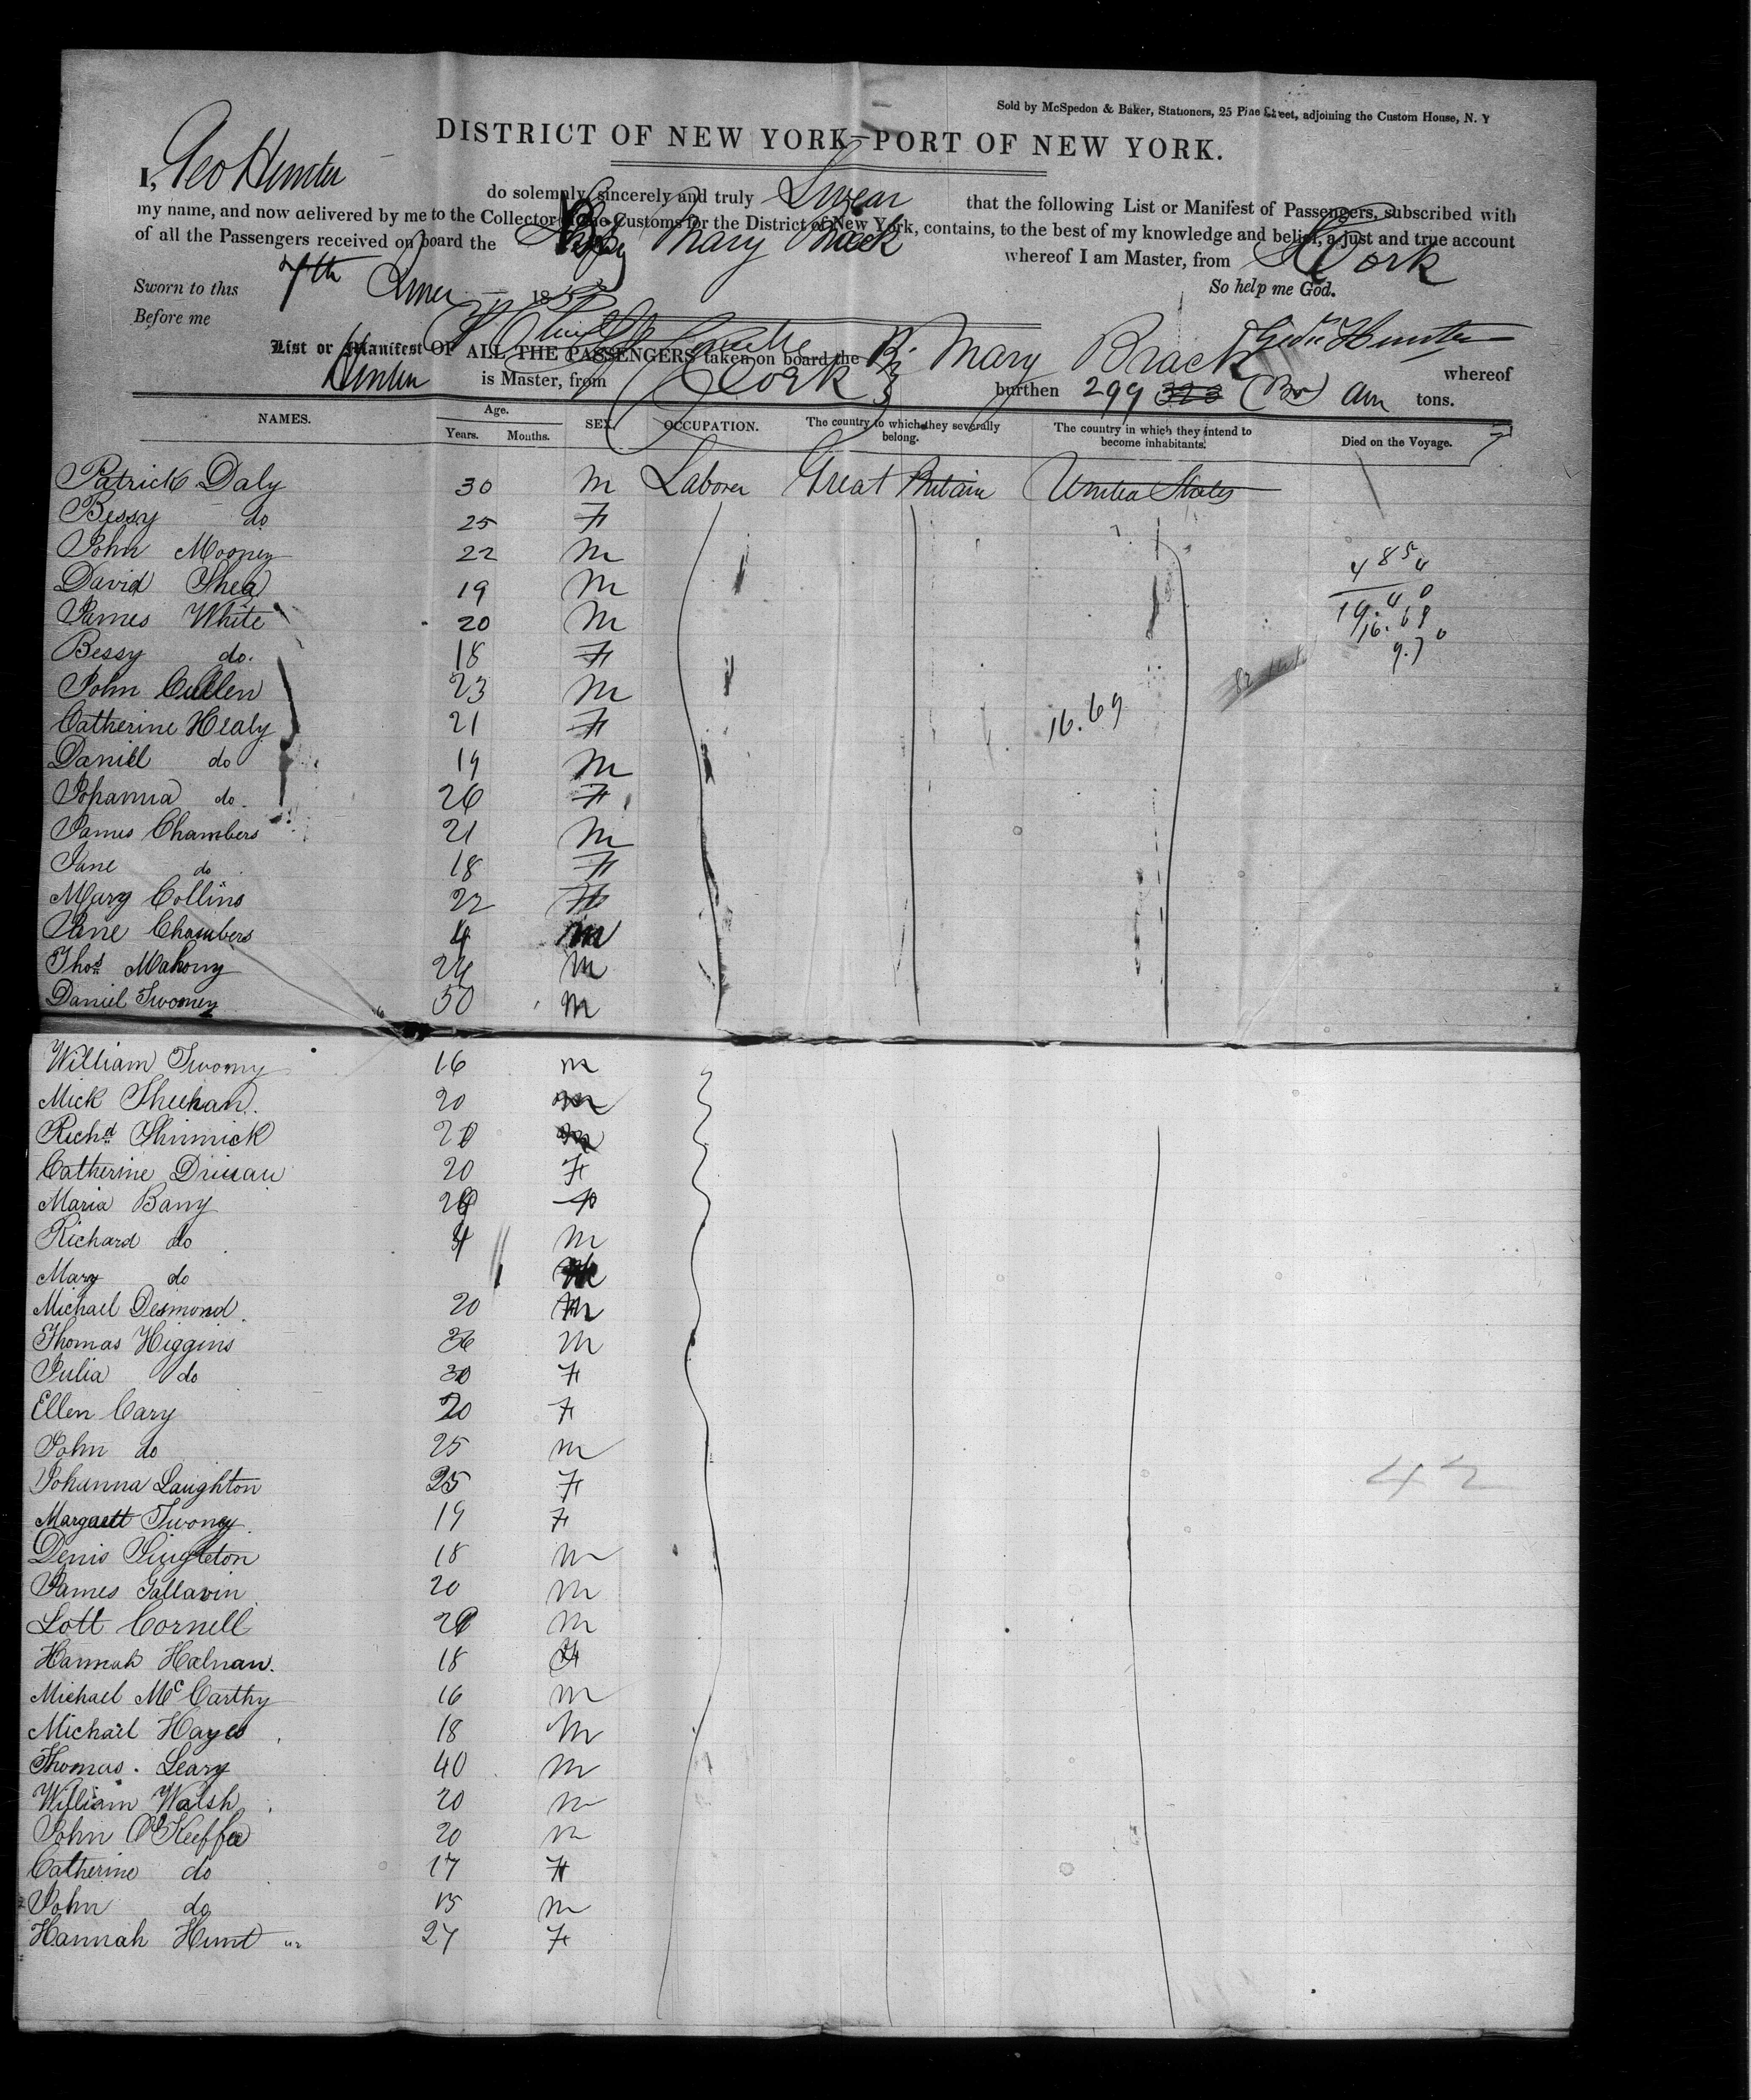 Sold by McSpedon & Baker, Stationers, 25 Pine Street, adjoining the Custom House, N. Y
DISTRICT OF NEW YORK—PORT OF NEW YORK.
I, Geo Hunter do solemnly, sincerely and truly Swear that the following List or Manifest of Passengers, subscribed with
my name, and now delivered by me to the Collector of the Customs for the District of New York, contains, to the best of my knowledge and belief, a just and true account
of all the Passengers received on board the Mary Brack whereof I am Master, from Cork
Sworn to this 7th June 185 So help me God.
Before me Geo Hunter
List or Manifest OF ALL THE PASSENGERS taken on board the Mary Brack whereof
Hunter is Master, from Cork burthen 299 323 (Br) Am tons.
NAMES. Age. Years. Months. SEX. OCCUPATION. The country to which they severally belong. The country in which they intend to become inhabitants. Died on the Voyage.
Patrick Daly 30 M Laborer Great Britain United States
Bessy do 25 F
John Mooney 22 M
David Shea 19 M
James White 20 M
Bessy do. 18 F
John Cullen 23 M
Catherine Healy 21 F 16.69
Daniel do 19 M
Johanna do. 26 F
James Chambers 21 M
Jane do 18 F
Mary Collins 22 F
Jane Chambers 4
Thos Mahony 24 M
Daniel Twomey 50 M
William Twomy 16 M
Mick Sheehan. 20 M
Richd Shinnick 20 M
Catherine 20 F
Maria Barry F
Richard do 4 M
Mary do
Michael Desmond. 20 M
Thomas Higgins 36 M
Julia do 30 F
Ellen Cary 20 F
John do 25 M
Johanna Laughton 25 F 42
Margaett Twomy. 19 F
Denis Singleton 18 M
James Gallavin 20 M
Lott Cornell M
Hannah Halnan. 18 F
Michael McCarthy 16 M
Michael Hayes 18 M
Thomas. Leary 40 M
William Walsh 20 M
John O'Keeffe 20 M
Catherine do 17 F
John do 15 M
Hannah Hunt 27 F